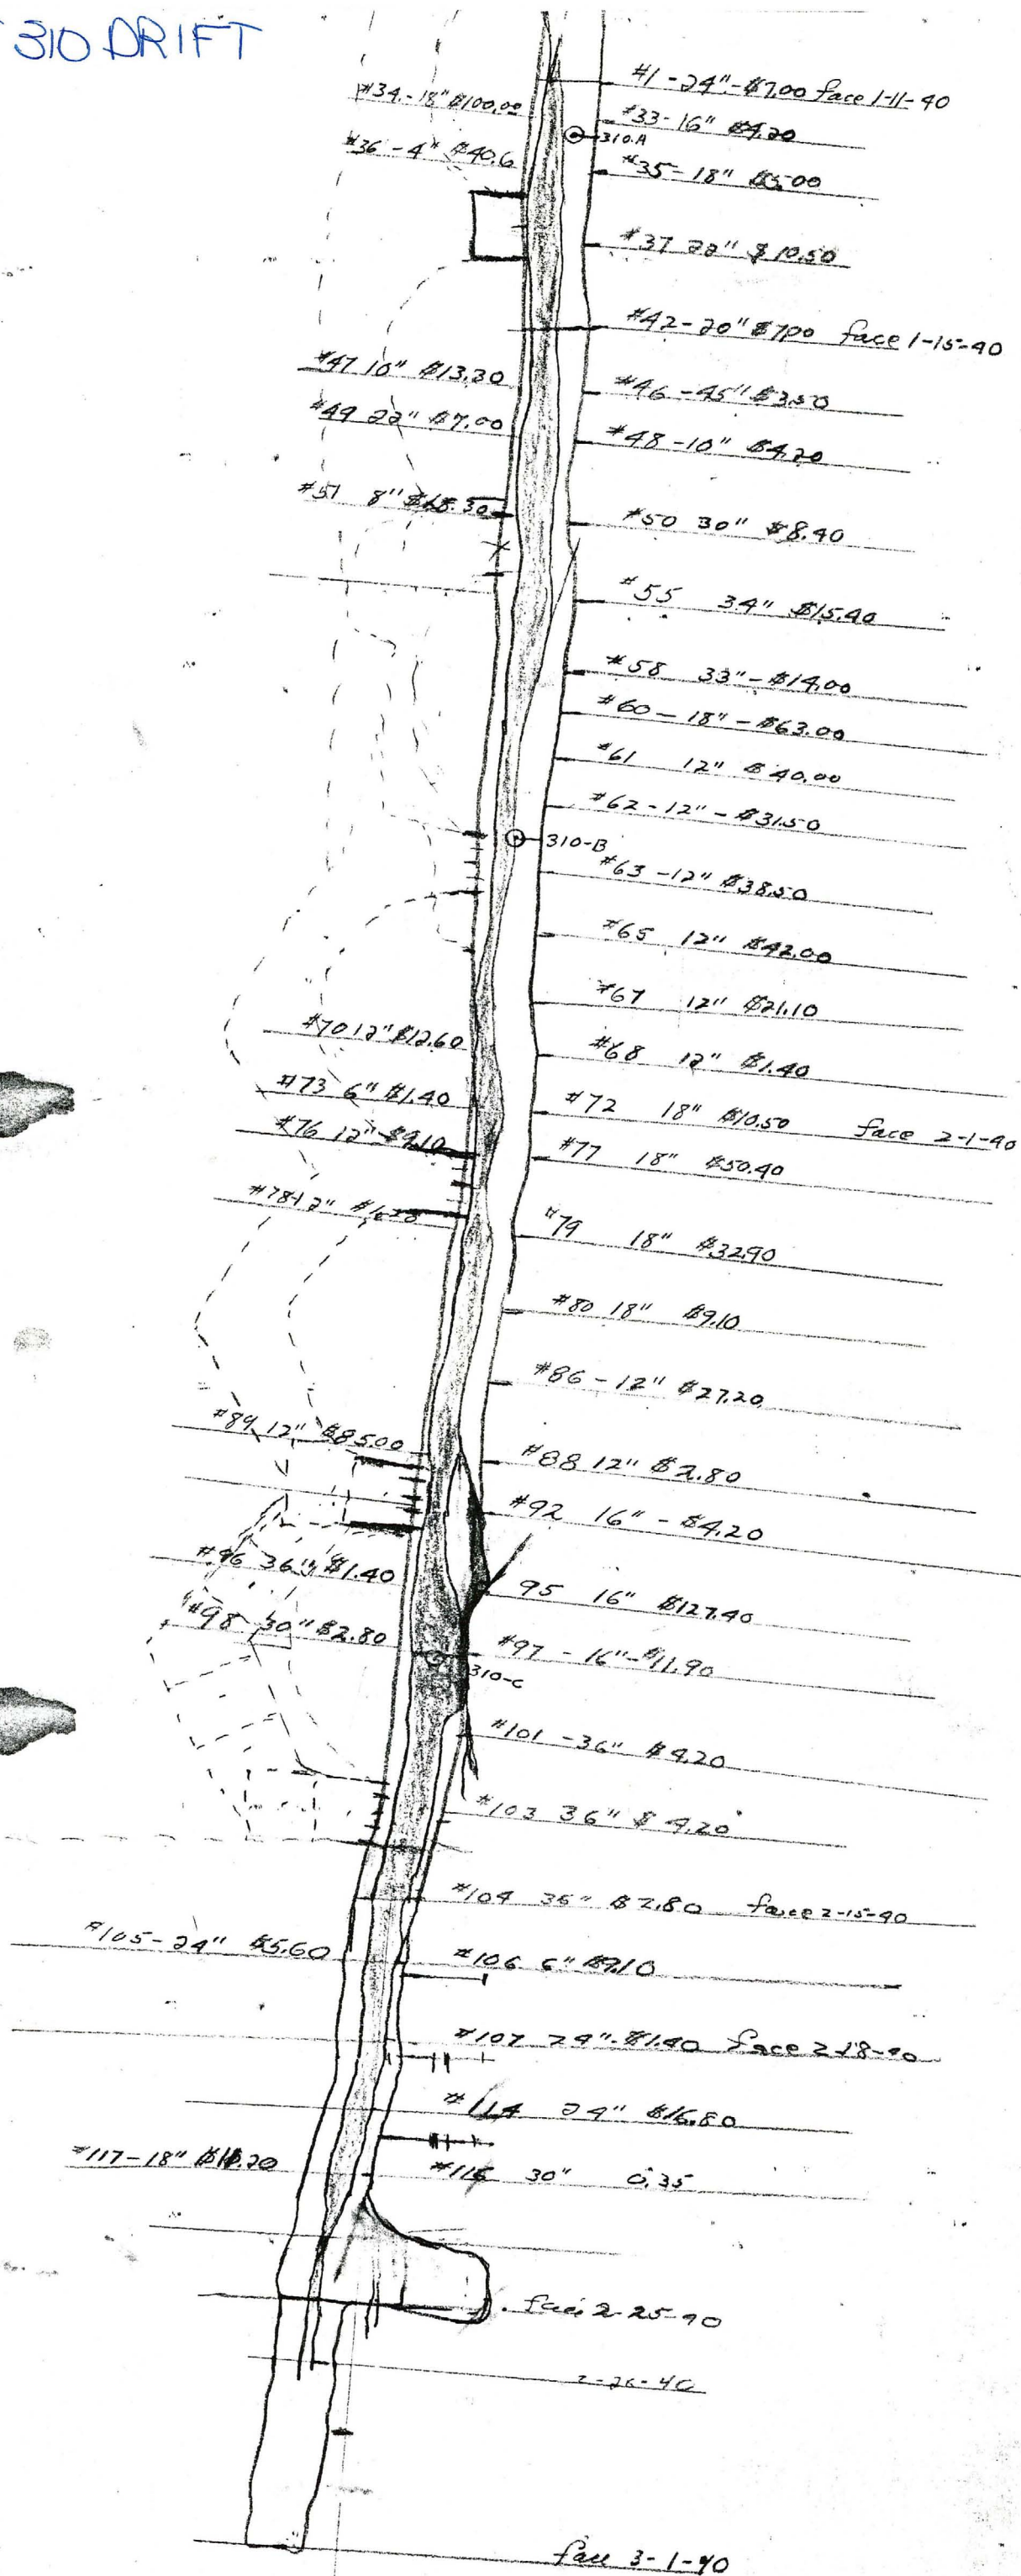 310 DRIFT
#1-24"-$7.00 face 1-11-40
#34-18" $100.00
#33-16" $4.20
310.A
#36-4" $40.6
#35-18" $5.00
#37 22" $10.50
#42-20" $7.00 face 1-15-40
#47 10" $13.30
#46-45" $3.50
#49 22" $7.00
#48-10" $4.20
#51 8" $68.30
#50 30" $8.40
#55 34" $15.40
#58 33"-$14.00
#60-18"-$63.00
#61 12" $40.00
#62-12"-$31.50
310-B
#63-12" $38.50
#65 12" $42.00
#67 12" $21.10
#70 12" $12.60
#68 12" $1.40
#73 6" $1.40
#72 18" $10.50 face 2-1-40
#76 12" $9.10
#77 18" $50.40
#78 12"
#79 18" $32.90
#80 18" $9.10
#86-12" $27.20
#89 12" $85.00
#88 12" $2.80
#92 16"-$4.20
#96 36" $1.40
95 16" $127.40
#98 30" $2.80
#97-16"-$11.90
310-C
#101-36" $4.20
#103 36" $4.20
#104 36" $2.80 face 2-15-40
#105-24" $5.60
#106 6" $9.10
#107 24"-$1.40 face 2-18-40
#114 24" $16.80
#117-18"
30" 0.35
face 2-25-40
2-26-40
face 3-1-40